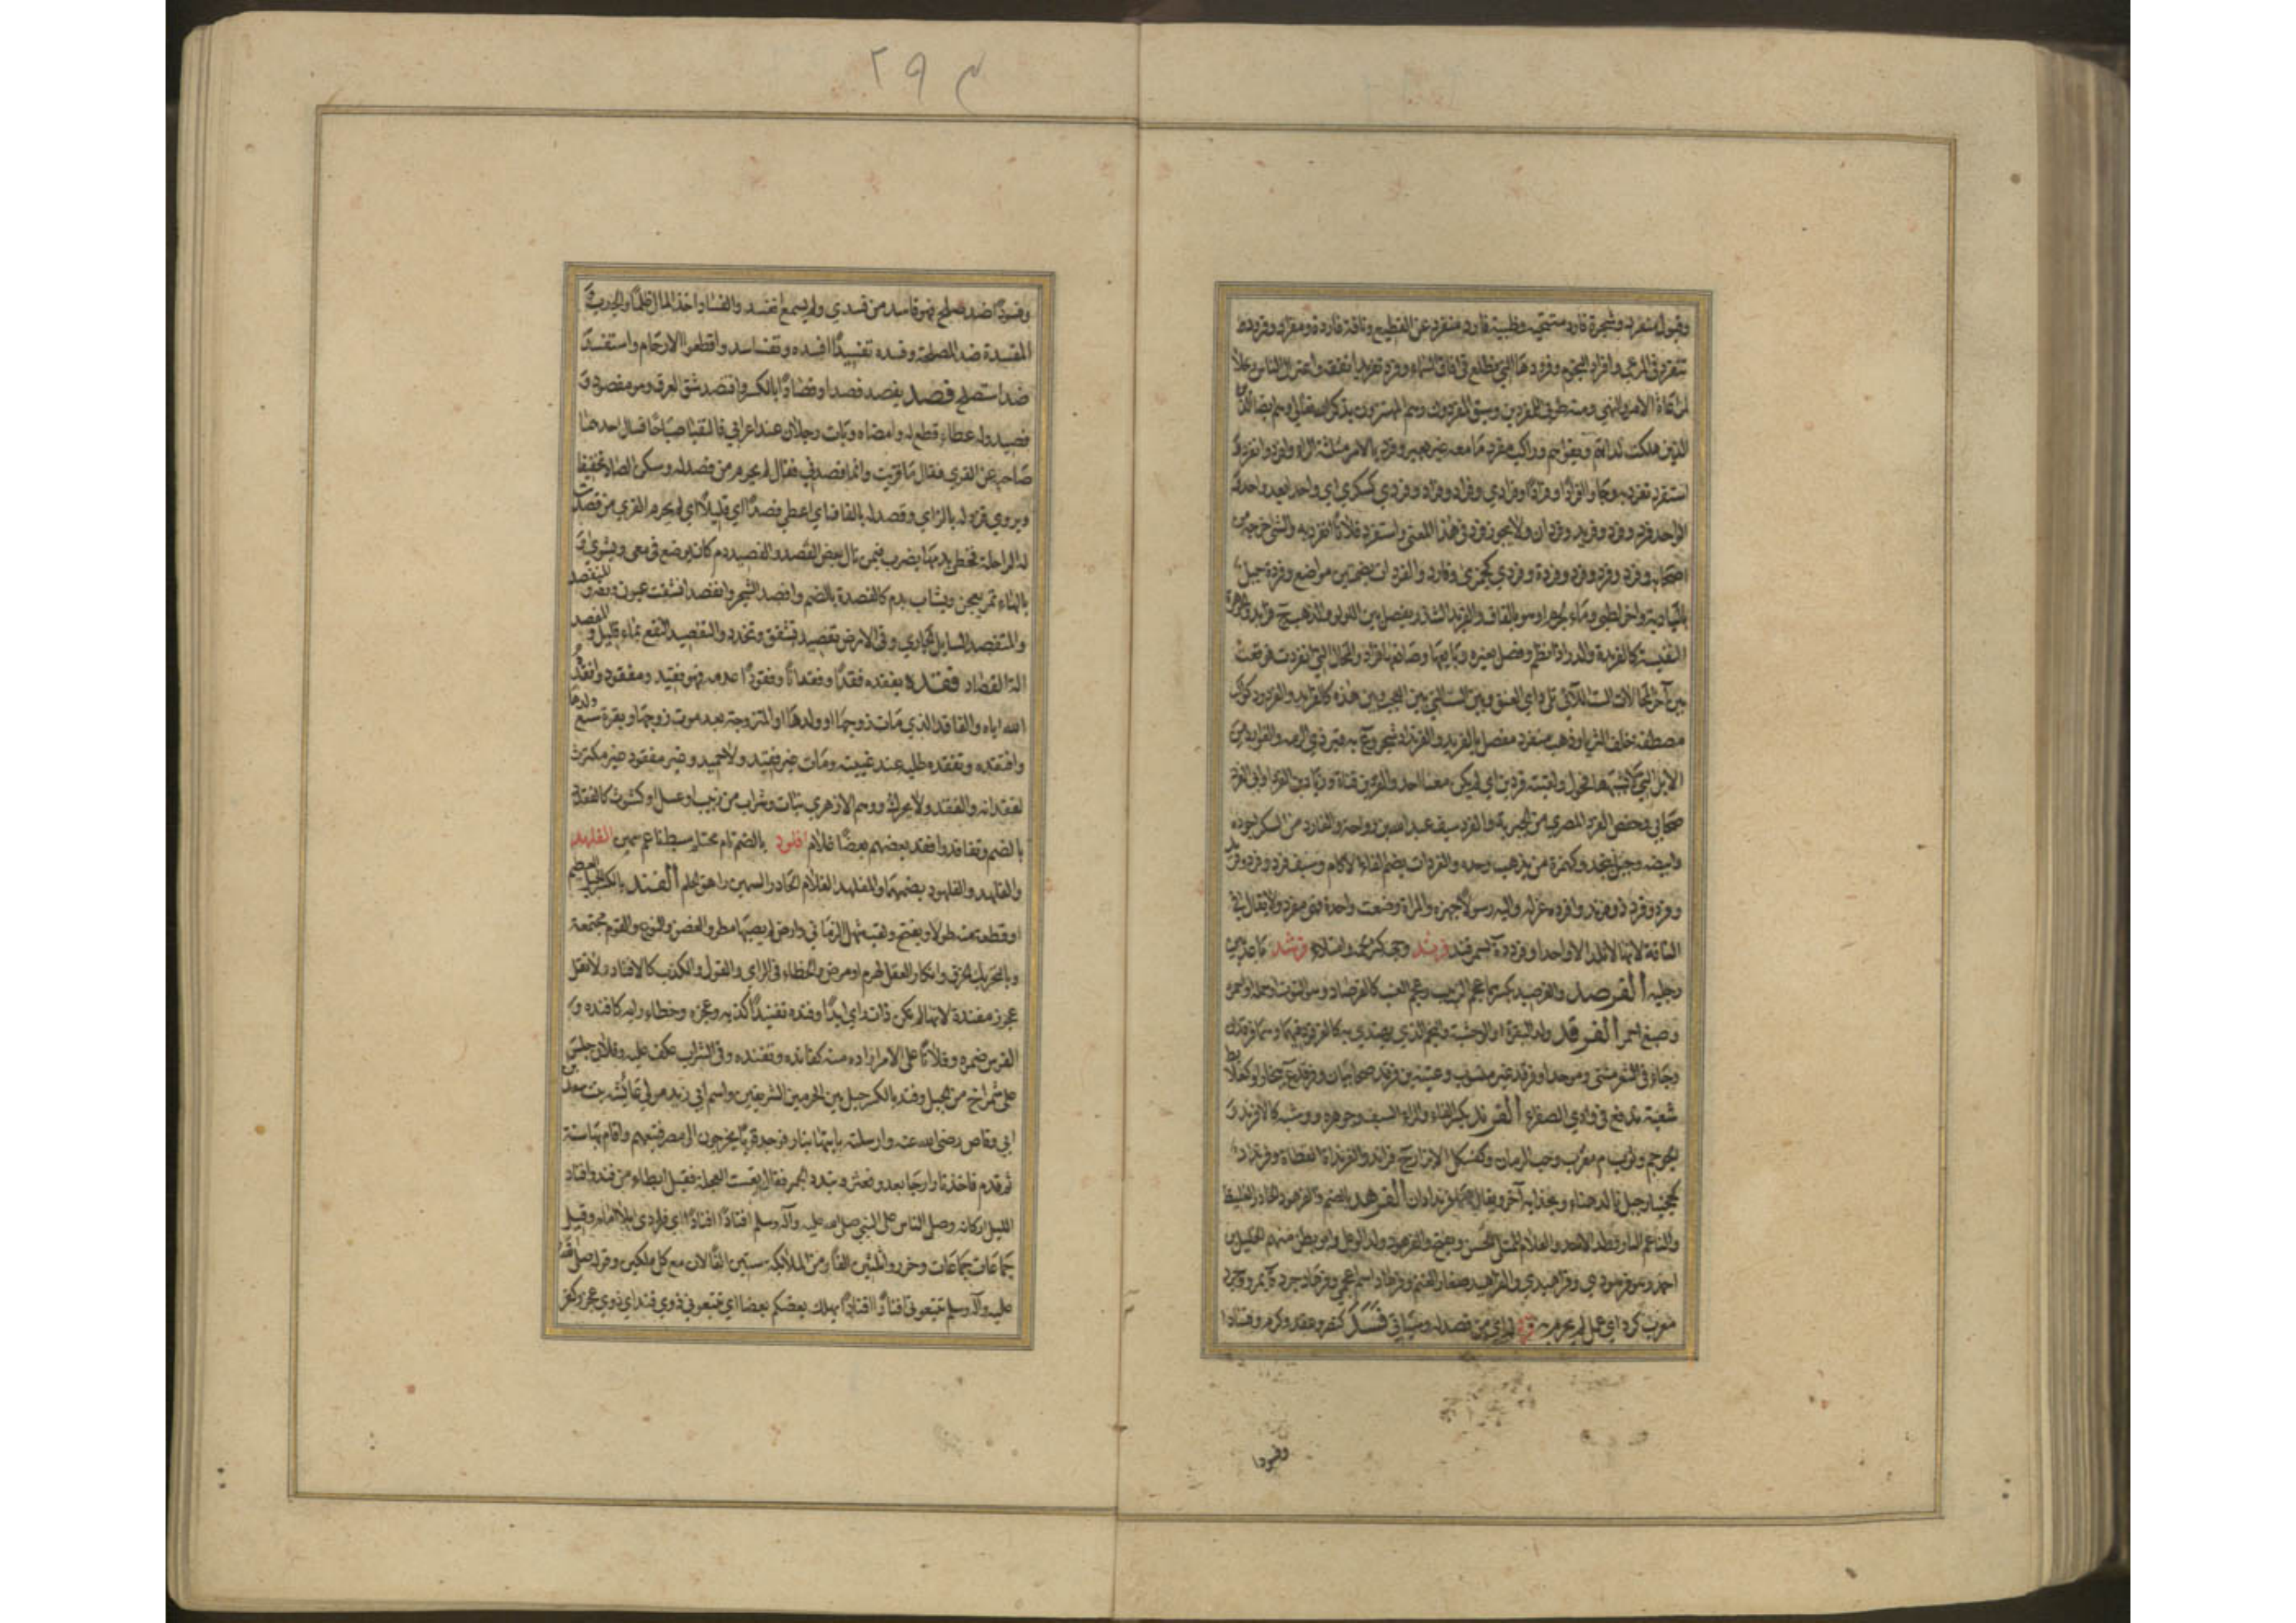 وشجرة فارد متنحية وظبية فارد منفرد عن القطيع وناقة فاردة ومفراد وفرود
في المرعى وافراد النجوم وفرودها التي تطلع في افاق السماء وفرد تفريدا تفقه واعتزل الناس وخلا
لمراعاة الامر والنهي ومنه طوبى للمفردين وسبق المفردون وهم المهتزون بذكر الله تعالى وهم ايضا
الذين هلكت لداتهم وبقوا هم وراكب مفرد ما معه غير بعيره وفرد بالامر مثلثة الراء وافرد وانفرد و
استفرد تفرد به وجاوا فرادا وفرادا وفرادى وفراد وفردى كسكرى اي واحدا بعد واحد و
الواحد فرد وفرد وفريد وفردان ولا يجوز فرد في هذا المعنى واستفرد فلانا انفرد به والشي اخرجه من
اصحابه وفرد وفردة وفردى كجمزى وفارد والفردات بضمتين مواضع وفردة جبل
بالبادية وماء لجرم او هو بالقاف والفريد الشذر يفصل بين اللؤلؤ والذهب ج فرائد والجوهرة
النفيسة كالفريدة والدر اذا نظم وفصل بغيره وبايعها وصانعها فراد والمحال التي انفردت فوقعت
بين آخر المحالات الست اللاتي تلي داي العنق وبين الست التي بين العجب وبين هذه كالفرايد والفرود كواكب
مصطفة خلف الثريا وذهب مفرد مفصل بالفريد والفرنداد شجر وع به قبر ذي الرمة والفوارد من
الابل التي لا تشبهها فحول ولقيته فردين اي لم يكن معنا احد
صحابي وحفص الفرد المصري من الجبرية والفرد سيف عبد الله بن رواحة والفارد من السكر اجوده
وابيضه وجبل بنجد وكهمزة من يذهب وحده والفردات بضم الفاء الاكام وسيف فرد وفرد وفرد
وافرده عزله واليه رسولا جهزه والمراة وضعت واحدة فهي مفرد ولا يقال في
الناقة لانها لا تلد الا واحدا وفرددة بسمرقند فرند وجهه كثر لحمه وامتلأ فرشد باعد بين
رجليه الفرصد والفرصيد بكسرهما عجم الزبيب وعجم العنب كالفرصاد وهو التوت او حمله او احمره
وصبغ احمر الفرقد ولد البقرة او الوحشية والنجم الذي يهتدى به كالفرقود فيهما وهما فرقدان
وجاء في الشعر مثنى وموحدا وفرقد غير منسوب وعتبة بن فرقد صحابيان وفرقد ع ببخارا وكعلابط
شعبة تدفع في وادي الصفراء الفرند بكسر الفاء والراء السيف وجوهره ووشيه كالافرند و
الحوجم وثوب م معرب وحب الرمان وكفسكل الابزار ج فراند والفرنداة القطاة وفرنداد
كجحنبار جبل بالدهناء وبحذايه آخر ويقال لهما فرندادان الفرهد بالضم والفرهود الحادر الغليظ
والناعم التار وولد الاسد والغلام الممتلئ الحسن ويفتح والفرهود ولد الوعل وابو بطن منهم الخليل بن
احمد وهو فرهودي وفراهيدي والفراهيد صغار الغنم وفرهاد اسم اعجمي وفرهادجرد ة بمرو وجرد
معرب كرد اي عمل لم يحرم من فزد له اي من فصد له وسياتي فسد كنصر وعقد وكرم فسادا
وفسودا
٢٩٤
وفسودا ضد صلح فهو فاسد من فسدي ولم يسمع انفسد والفساد اخذ المال ظلما والجدب و
المفسدة ضد المصلحة وفسده تفسيدا افسده وتفاسدوا قطعوا الارحام واستفسد
ضد استصلح فصد يفصد فصدا وفصادا بالكسر وافتصد شق العرق وهو مفصود و
فصيد وله عطاء قطع له وامضاه وبات رجلان عند اعرابي فالتقيا صباحا فسال احدهما
صاحبه عن القرى فقال ما قريت وانما فصد لي فقال لم يحرم من فصد له وسكن الصاد تخفيفا
ويروى فزد له بالزاي وقصد له بالقاف اي اعطي قصدا اي قليلا اي لم يحرم القرى من فصدت
له الراحلة فحظي بدمها يضرب فيمن نال بعض القصد والفصيد دم كان يوضع في معى ويشوى و
بالهاء تمر يعجن ويشاب بدم كالفصدة بالضم وافصد الشجر وانفصد انشقت عيون ورقه و
والمنفصد السايل الجاري وفي الارض تفصيد تشقق وتخدد والتفصيد النقع بماء قليل و
الة الفصاد فقده يفقده فقدا وفقدانا وفقودا عدمه فهو فقيد ومفقود وافقده
الله اياه والفاقد الذي مات زوجها او ولدها او المتزوجة بعد موت زوجها وبقرة سبع ولدها
وافتقده وتفقده طلبه عند غيبته ومات غير فقيد ولا حميد وغير مفقود غير مكترث
لفقدانه والفقد ولا يحرك ووهم الازهري نبات وشراب من زبيب او عسل او كشوث كالفقدد
بالضم وتفاقدوا فقد بعضهم بعضا غلام افلود بالضم تام محتلم سبط ناعم سمين الفلهد
والفلهد والفلهود بضمهما والمفلهد الغلام الحادر السمين راهق الحلم الفند بالكسر الجبل العظيم
او قطعة منه طولا ويفتح ولقب شهل الزماني وارض لم يصبها مطر والغصن والنوع والقوم مجتمعة
وبالتحريك الخرف وانكار العقل لهرم او مرض والخطاء في الراي والقول والكذب كالافناد ولا تقل
عجوز مفندة لانها لم تكن ذات راي ابدا وفنده تفنيدا كذبه وعجزه وخطا رايه كافنده و
الفرس ضمره وفلانا على الامر اراده منه كفانده وتفنده وفي الشراب عكف عليه وفلان جلس
على شمراخ من الجبل وفند بالكسر جبل بين الحرمين الشريفين واسم ابي زيد مولى عائشة بنت سعد بن
ابي وقاص رضي الله عنه وارسلته ياتيها بنار فوجد قوما يخرجون الى مصر فتبعهم واقام بها سنة
ثم قدم فاخذ نارا وجا يعدو فعثر وتبدد الجمر فقال تعست العجلة فقيل ابطاء من فند وافناد
الليل اركانه وصلى الناس على النبي صلى الله عليه وآله وسلم افنادا افنادا اي فرادى بلا امام وقيل
جماعات جماعات وحزروا المصلين الفا ومن الملائكة ستين الفا لان مع كل ملكين وقوله صلى الله
عليه وآله وسلم تتبعوني افنادا افنادا يهلك بعضكم بعضا اي تتبعوني ذوي فند اي ذوي عجز وكفر